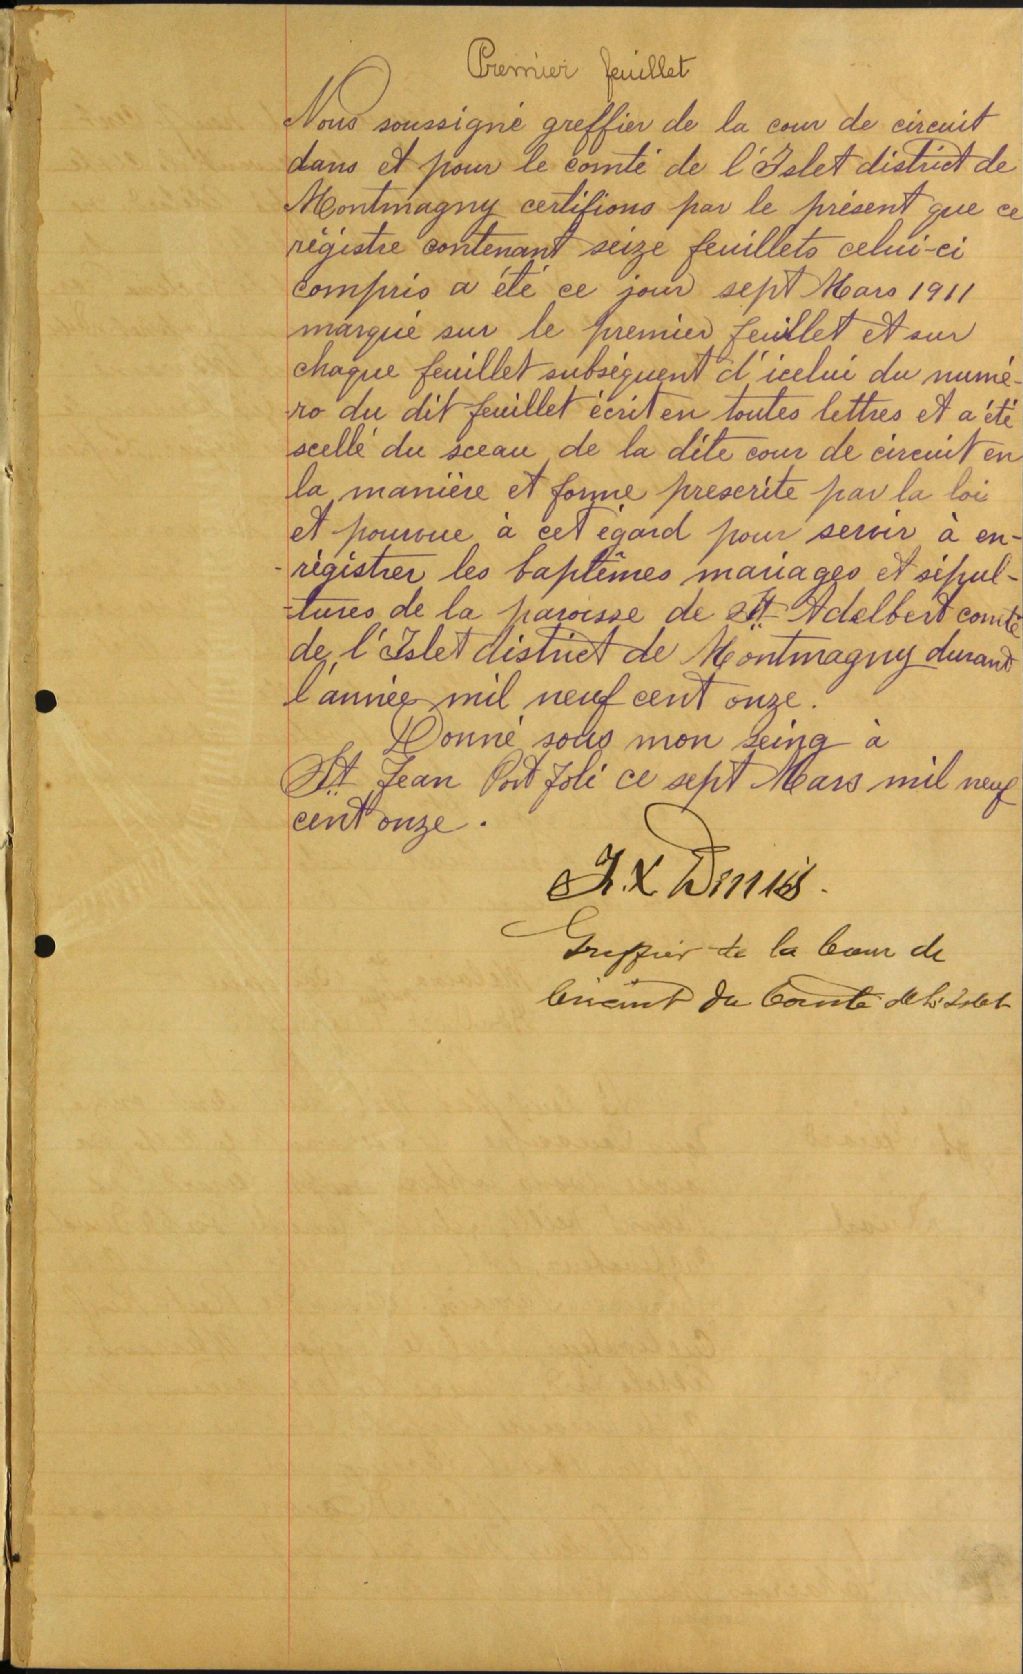 Premier feuillet
Nous soussigné greffier de la cour de circuit
dans et pour le comté de l'Islet district de
Montmagny certifions par le présent que ce
régistre contenant seize feuillets celui-ci
compris a été ce jour sept Mars 1911
marqué sur le premier feuillet et sur
chaque feuillet subséquent d'icelui du numé-
-ro du dit feuillet écrit en toutes lettres et a été
scellé du sceau de la dite cour de circuit en
la manière et forme prescrite par la loi
et pourvue à cet égard pour servir à en-
-régistrer les baptêmes mariages et sépul-
-tures de la paroisse de St Adelbert comté
de l'Islet district de Montmagny durant
l'année mil neuf cent onze.
Donné sous mon seing à
St Jean Port Joli ce sept Mars mil neuf
cent onze.
F. X Denis
Greffier de la Cour de
Circuit du Comté de L'Islet